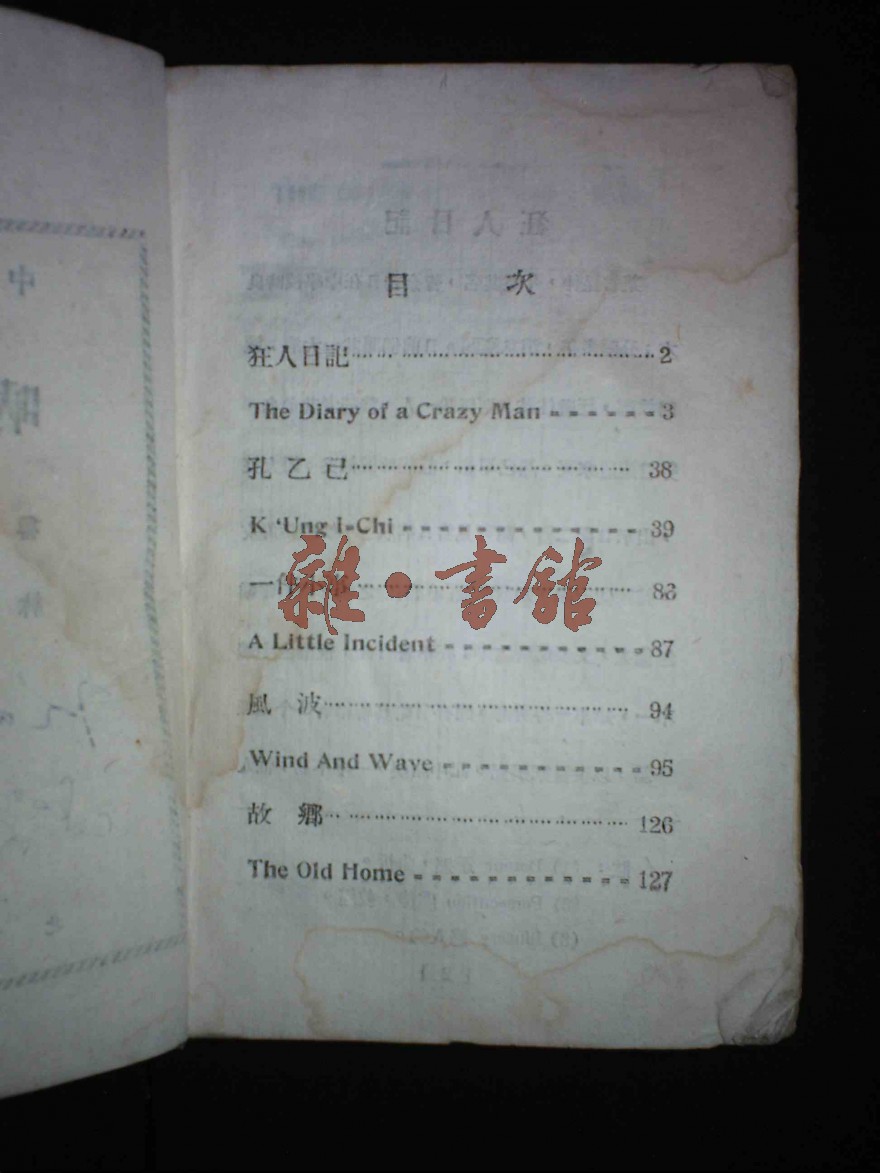 目 次
狂人日記 2
The Diary of a Crazy Man 3
孔乙己 38
K 'Ung i-Chi 39
一件小事
A Little Incident 87
風波 94
Wind And Wave 95
故鄉 126
The Old Home 127
雜·書館
中
吶